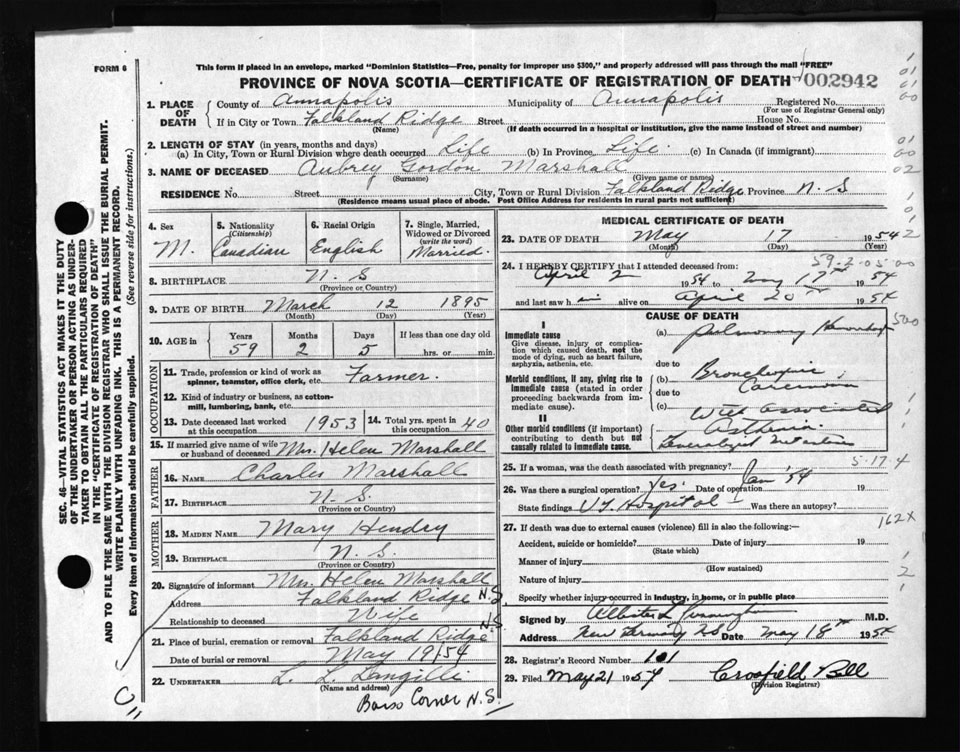 FORM 6
This form if placed in an envelope, marked "Dominion Statistics—Free, penalty for improper use $300," and properly addressed will pass through the mail "FREE"
PROVINCE OF NOVA SCOTIA—CERTIFICATE OF REGISTRATION OF DEATH 002942
1. PLACE OF DEATH { County of Annapolis Municipality of Annapolis Registered No.
(For use of Registrar General only)
If in City or Town Falkland Ridge Street House No.
(Name) (If death occurred in a hospital or institution, give the name instead of street and number)
2. LENGTH OF STAY (in years, months and days)
(a) In City, Town or Rural Division where death occurred Life (b) In Province Life. (c) In Canada (if immigrant)
3. NAME OF DECEASED Aubrey Gordon Marshall
(Surname) (Given name or names)
RESIDENCE No. Street City, Town or Rural Division Falkland Ridge Province N. S
(Residence means usual place of abode. Post Office Address for residents in rural parts not sufficient)
4. Sex 5. Nationality (Citizenship) 6. Racial Origin 7. Single, Married, Widowed or Divorced (write the word)
M. Canadian English Married.
8. BIRTHPLACE N. S
(Province or Country)
9. DATE OF BIRTH March 12 1895
(Month) (Day) (Year)
10. AGE IN Years Months Days If less than one day old
59 2 5 hrs. or min.
OCCUPATION
11. Trade, profession or kind of work as spinner, teamster, office clerk, etc. Farmer.
12. Kind of industry or business, as cotton-mill, lumbering, bank, etc.
13. Date deceased last worked at this occupation 1953 14. Total yrs. spent in this occupation 40
15. If married give name of wife or husband of deceased Mrs. Helen Marshall
FATHER
16. NAME Charles Marshall
17. BIRTHPLACE N. S.
(Province or Country)
MOTHER
18. MAIDEN NAME Mary Hendry
19. BIRTHPLACE N. S.
(Province or Country)
20. Signature of informant Mrs. Helen Marshall
Address Falkland Ridge N.S
Relationship to deceased Wife
21. Place of burial, cremation or removal Falkland Ridge N.S
Date of burial or removal May 19/54
22. UNDERTAKER L. L. Langille
(Name and address)
Barss Corner N.S.
MEDICAL CERTIFICATE OF DEATH
23. DATE OF DEATH May 17 1954
(Month) (Day) (Year)
59-2-05-00
24. I HEREBY CERTIFY that I attended deceased from:
April 2 1954 to May 17th 1954
and last saw him alive on April 20th 1954
CAUSE OF DEATH
I
Immediate cause
Give disease, injury or complication which caused death, not the mode of dying, such as heart failure, asphyxia, asthenia, etc.
(a) Pulmonary Hemorrhage
due to
Morbid conditions, if any, giving rise to immediate cause (stated in order proceeding backwards from immediate cause).
(b) Bronchogenic Carcinoma
due to
(c) With associated
II
Other morbid conditions (if important) contributing to death but not causally related to immediate cause.
Asthenia
Generalized
25. If a woman, was the death associated with pregnancy?
5-17-4
26. Was there a surgical operation? yes. Date of operation Jan '54 19
State findings V.G. Hospital Was there an autopsy?
162X
27. If death was due to external causes (violence) fill in also the following:—
Accident, suicide or homicide? Date of injury 19
(State which)
Manner of injury
(How sustained)
Nature of injury
Specify whether injury occurred in industry, in home, or in public place
Signed by M.D.
Address New Germany NS Date May 18th 1954
28. Registrar's Record Number 101
29. Filed May 21 1954 Crossfield Bell
(Division Registrar)
SEC. 46—VITAL STATISTICS ACT MAKES IT THE DUTY
OF THE UNDERTAKER OR PERSON ACTING AS UNDER-
TAKER TO OBTAIN ALL THE PARTICULARS REQUIRED
IN THE "CERTIFICATE OF REGISTRATION OF DEATH"
AND TO FILE THE SAME WITH THE DIVISION REGISTRAR WHO SHALL ISSUE THE BURIAL PERMIT.
WRITE PLAINLY WITH UNFADING INK. THIS IS A PERMANENT RECORD.
Every item of information should be carefully supplied. (See reverse side for instructions.)